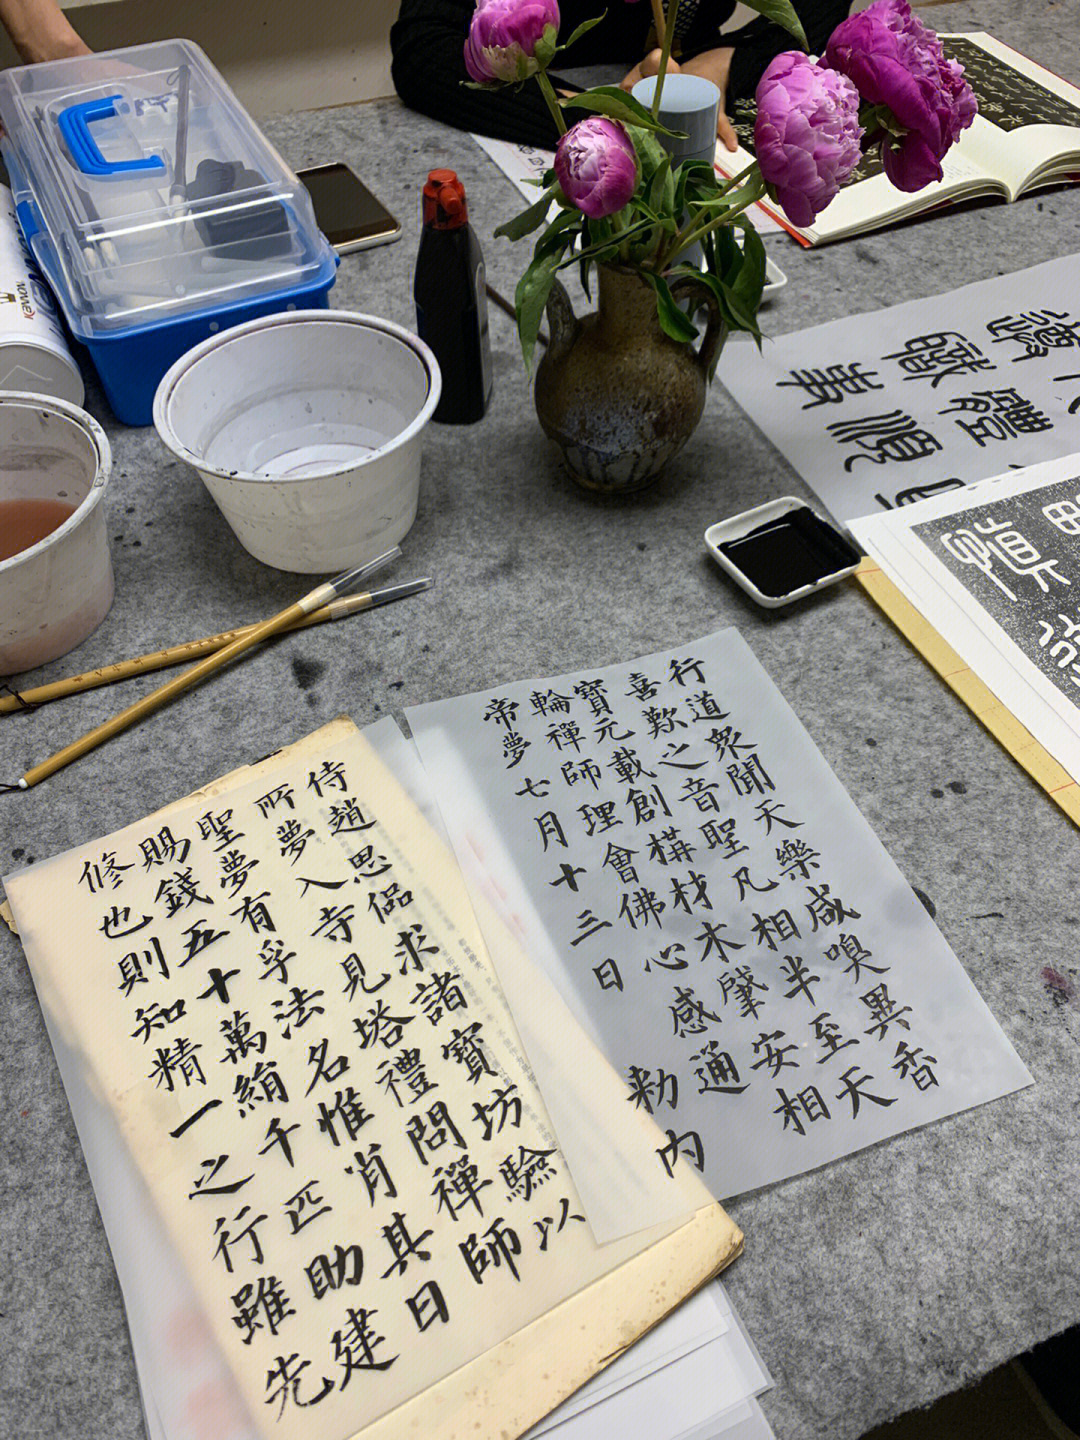 行道衆聞天樂咸嗅異香
喜歎之音聖凡相半至天
寶元載創構材木肇安相
輪禪師理會佛心感通
帝夢七月十三日勑内
侍趙思偘求諸寶坊驗以
所夢入寺見塔禮問禪師
聖夢有孚法名惟肖其日
賜錢五十萬絹千匹助建
修也則知精一之行雖先
職體
事順